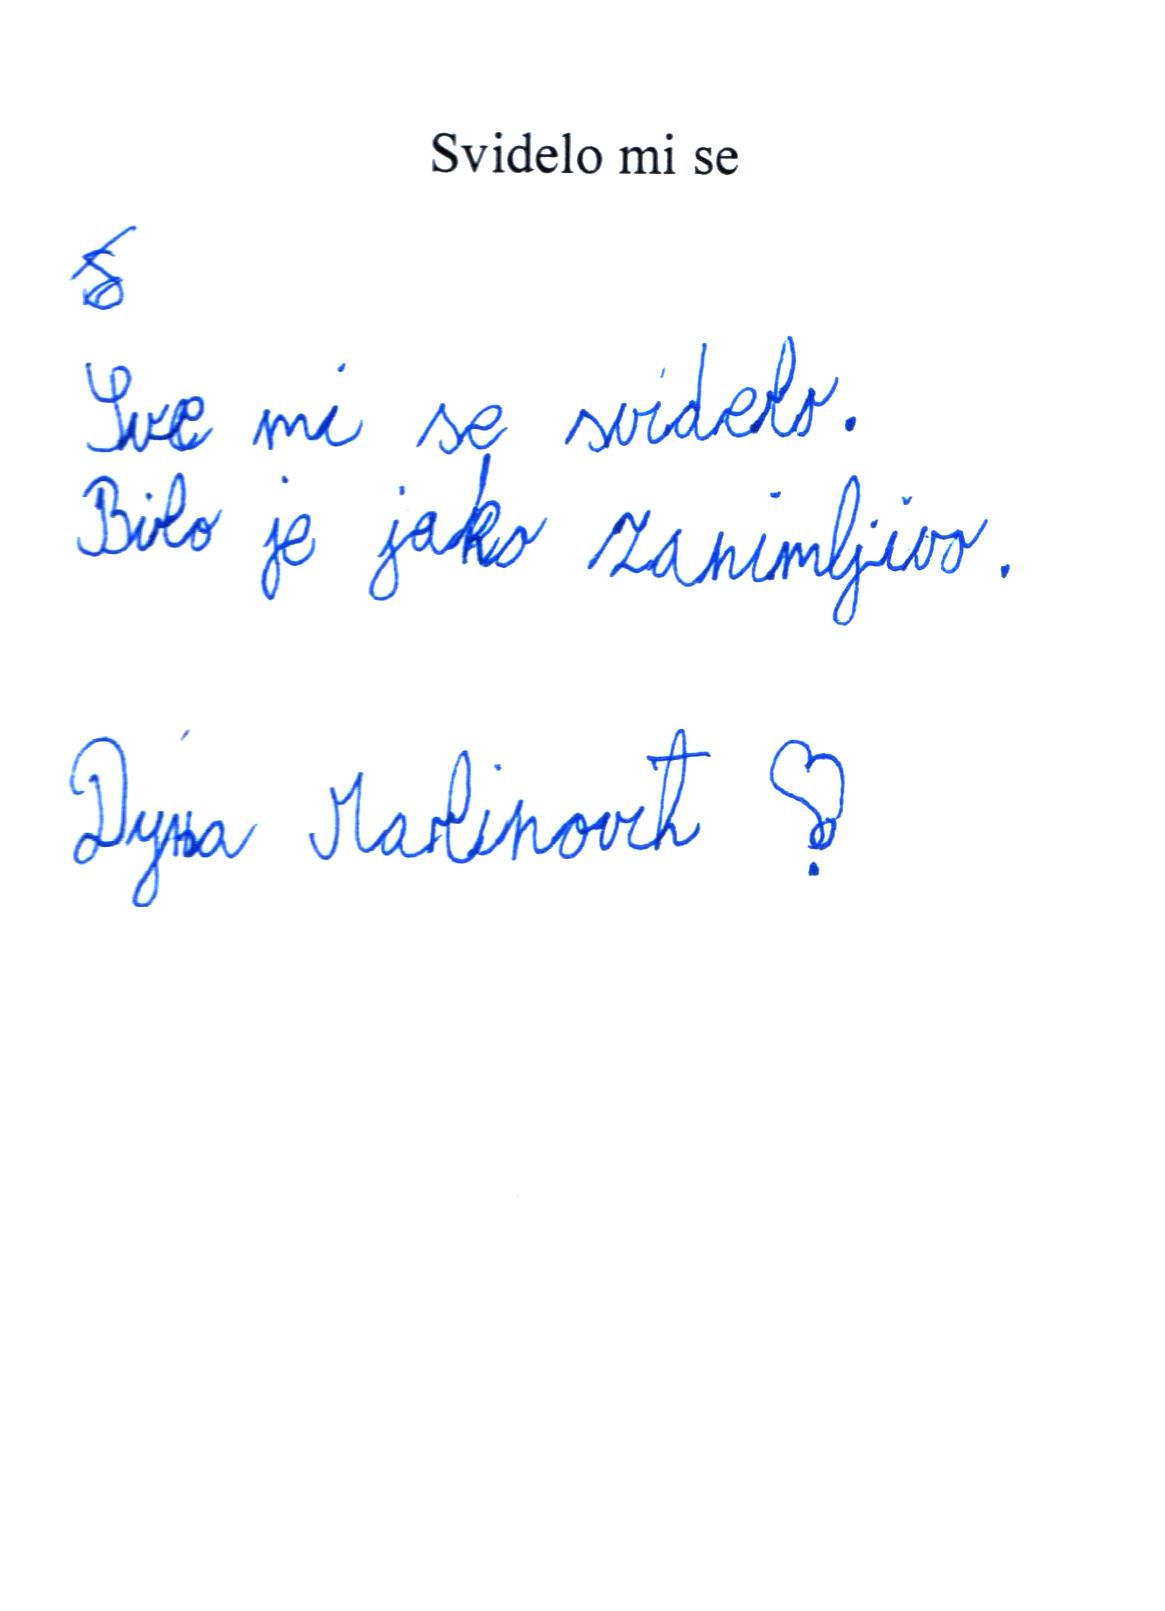 Svidelo mi se
Sve mi se svidelo.
Bilo je jako zanimljivo.